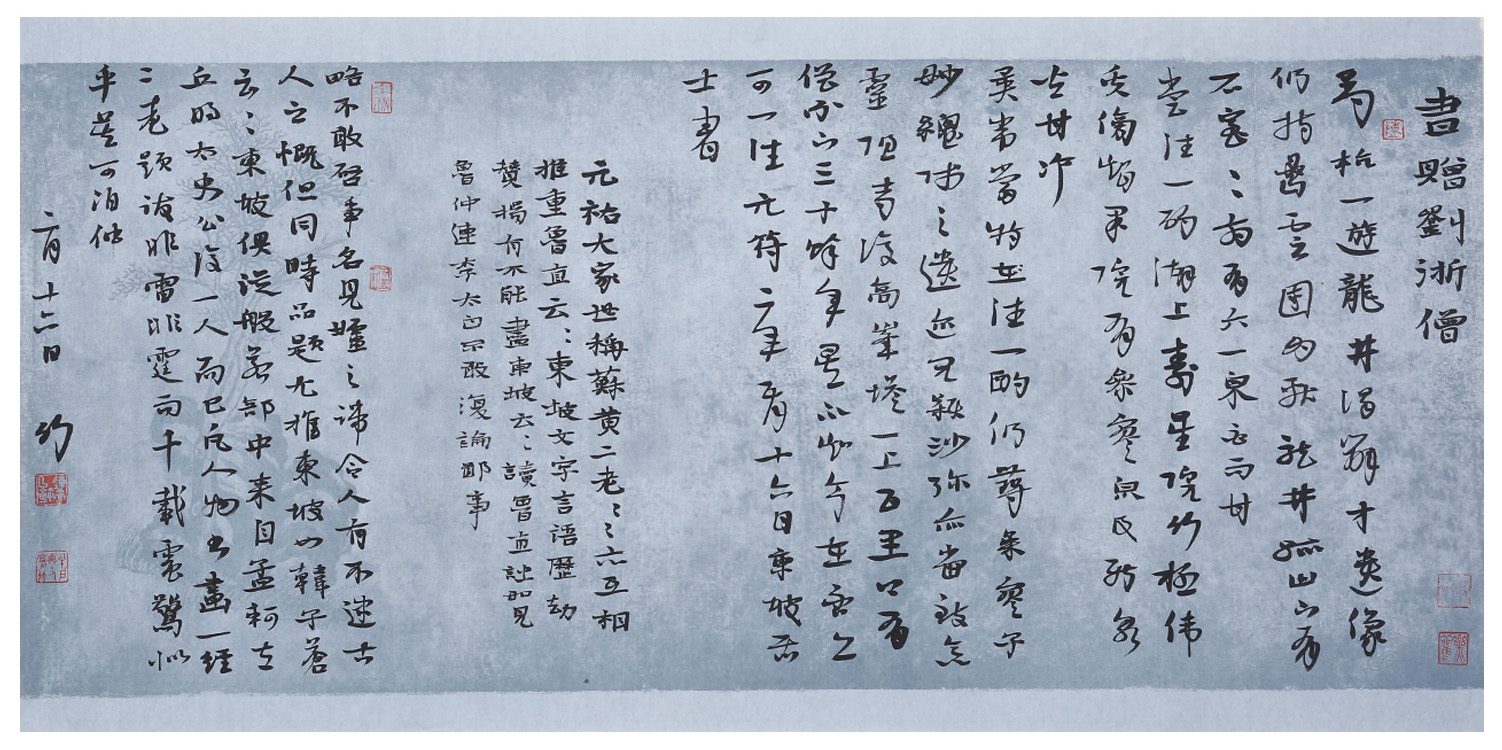 書贈劉浙僧
到杭一遊龍井謁辯才遺像
仍持密雲團為獻龍井孤山下有
石室〻前有六一泉白而甘
當往一酌湖上壽星院竹極偉
其傍智果院有參寥泉及新泉
皆甘冷
異常當特往一酌仍尋參寥子
妙總師之遺迹見穎沙彌亦當致意
靈隱寺後高峯塔一上五里上有
僧不下三十餘年矣不知今在否亦
可一往元符二年五月十六日東坡居
士書
元祐大家世稱蘇黃二老〻〻亦互相
推重魯直云〻東坡文字言語歷劫
贊揚有不能盡東坡云〻讀魯直詩如見
魯仲連李太白不敢復論鄙事
略不敢啓事名見之諦令人有不逮古
人之慨但同時品題尤推東坡如韓子蒼
云〻東坡俱從般若部中來自孟軻左
丘明太史公後一人而已凡人物書畫一經
二老題跋非雷非霆而千載震驚似
乎莫可泊
二月十六日 竹